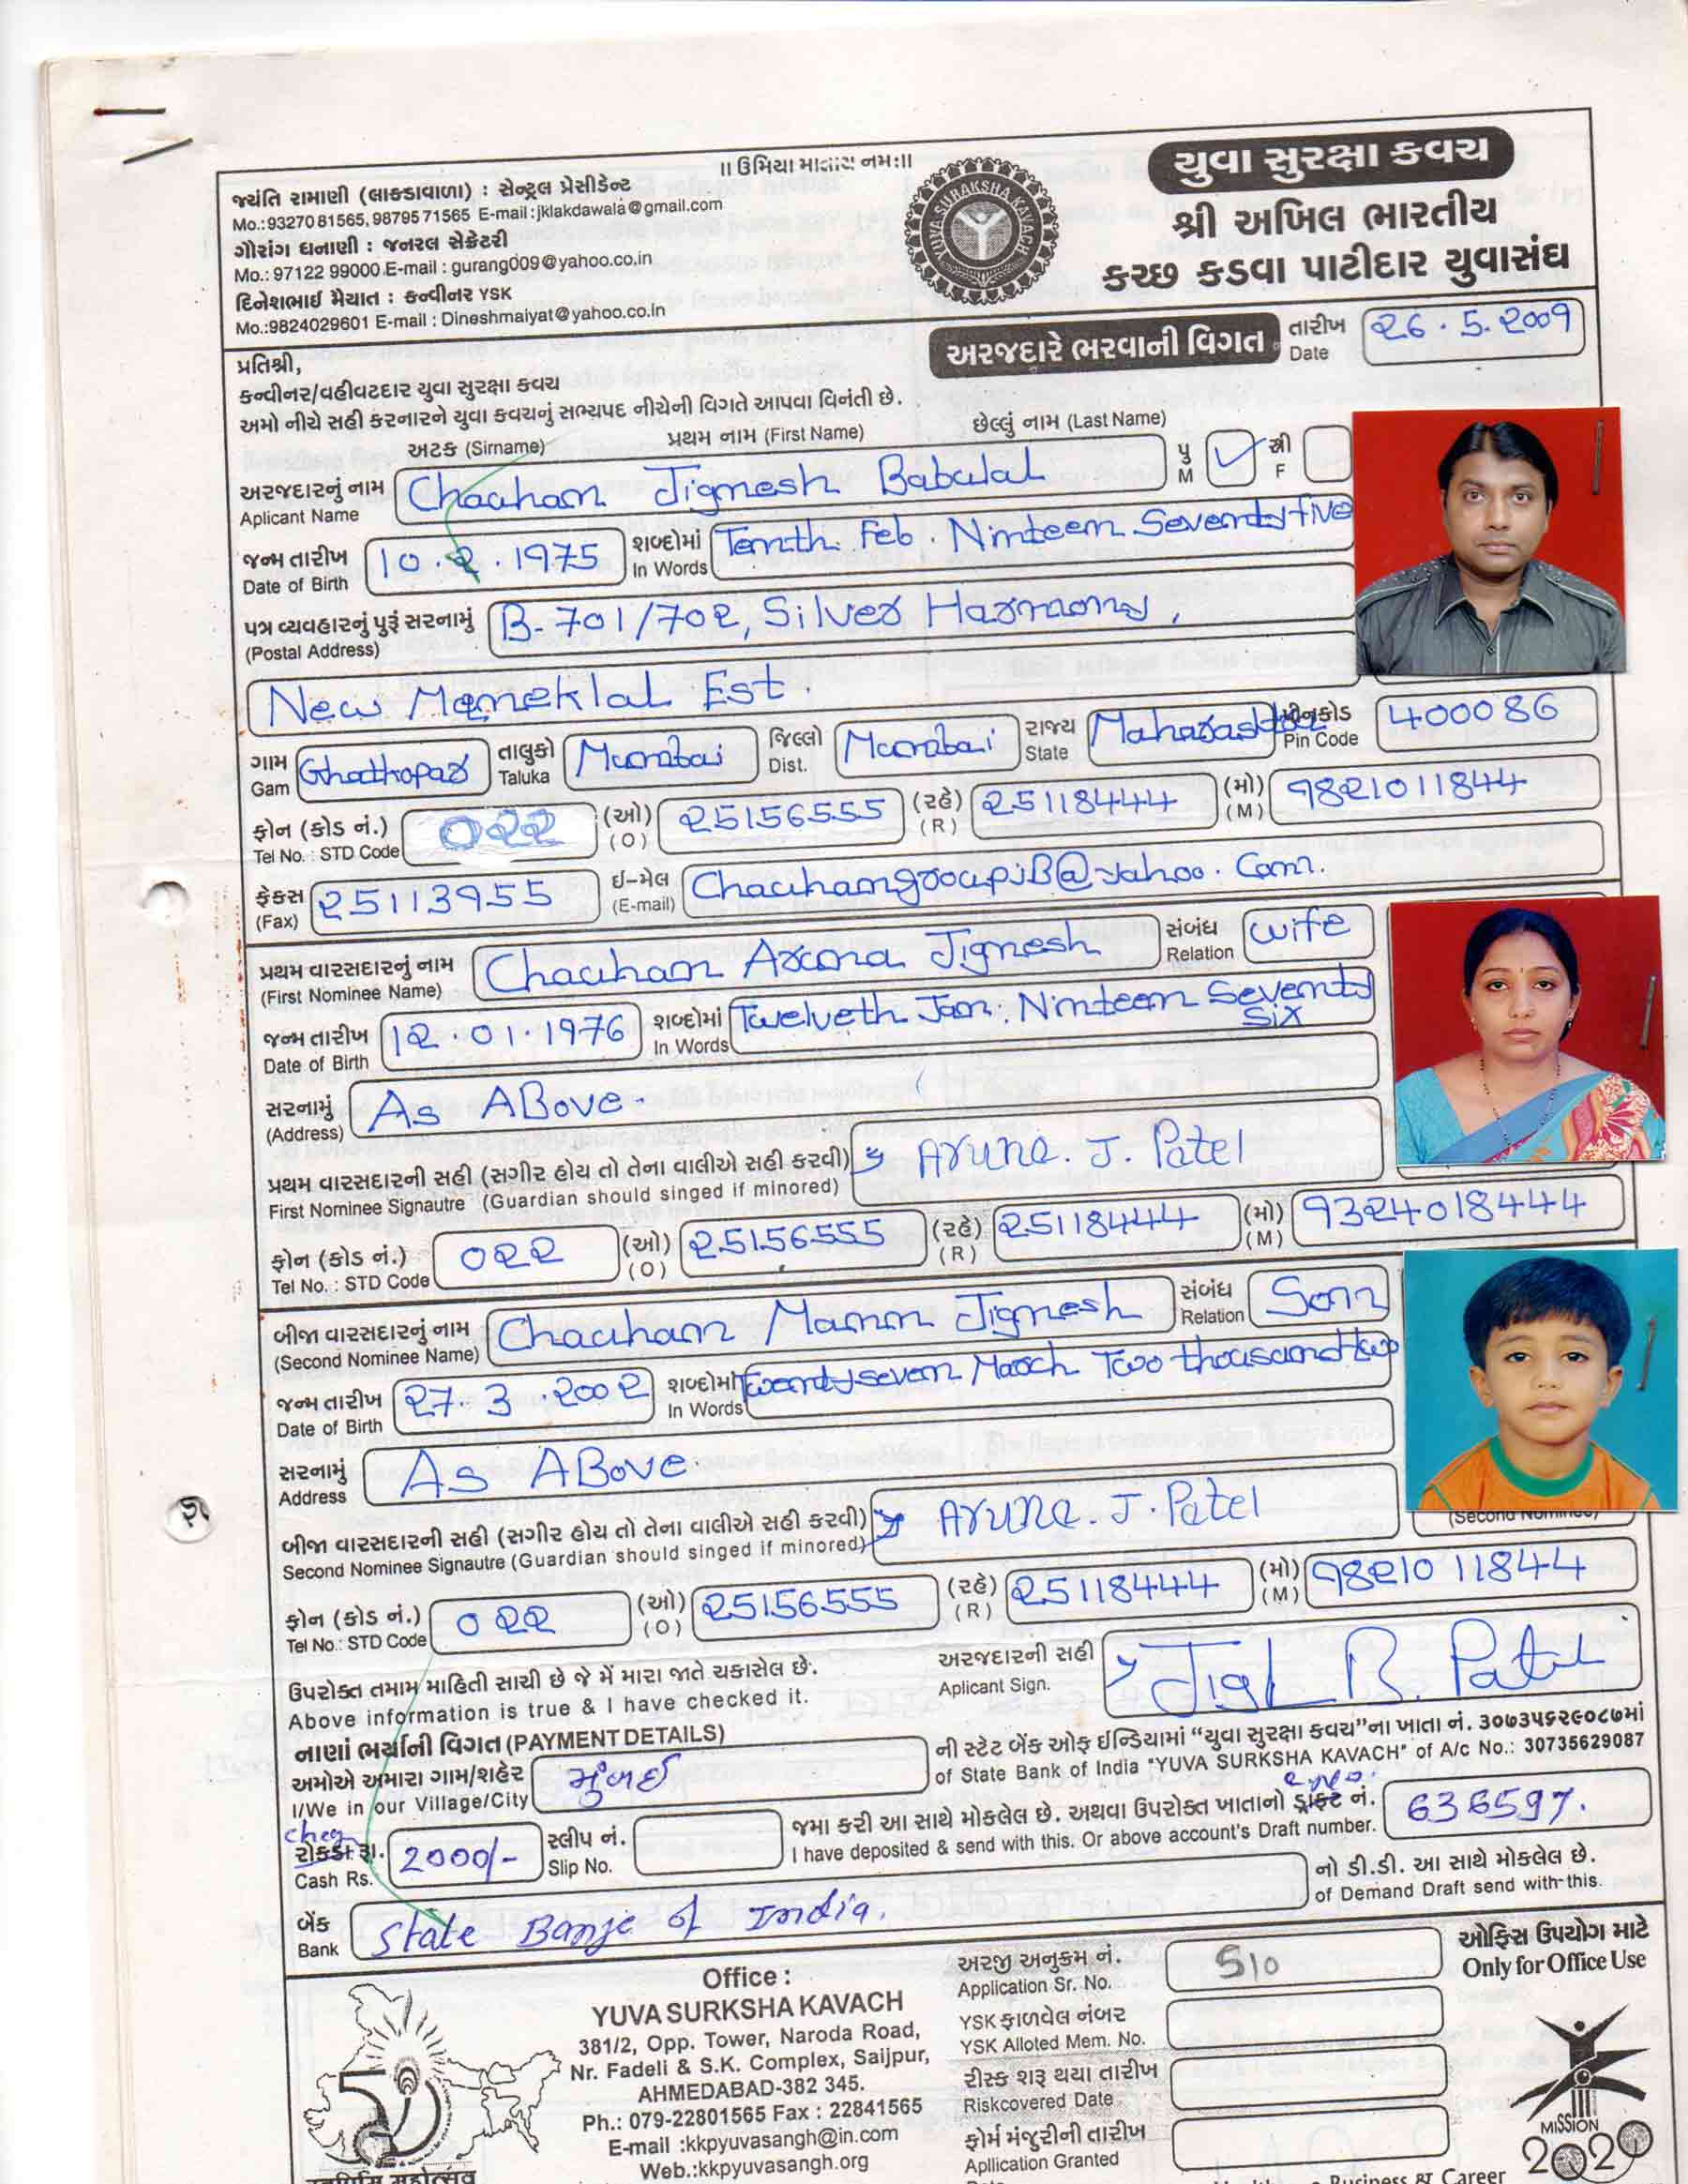 ॥ ઉમિયા માતાય નમઃ॥
જ્યંતિ રામાણી (લાકડાવાળા) : સેન્ટ્રલ પ્રેસીડેન્ટ
Mo.:9327081565,9879571565 E-mail:jklakdawala@gmail.com
ગૌરાંગ ધનાણી : જનરલ સેક્રેટરી
Mo.: 97122 99000 E-mail : gurang009@yahoo.co.in
દિનેશભાઈ મૈયાત : કન્વીનર YSK
Mo.:9824029601 E-mail : Dineshmaiyat@yahoo.co.in
YUVA SURAKSHA KAVACH
યુવા સુરક્ષા કવચ
શ્રી અખિલ ભારતીય
કચ્છ કડવા પાટીદાર યુવાસંઘ
અરજદારે ભરવાની વિગત તારીખ Date 26.5.2009
પ્રતિશ્રી,
કન્વીનર/વહીવટદાર યુવા સુરક્ષા કવચ
અમો નીચે સહી કરનારને યુવા કવચનું સભ્યપદ નીચેની વિગતે આપવા વિનંતી છે.
અટક (Sirname) પ્રથમ નામ (First Name) છેલ્લું નામ (Last Name)
અરજદારનું નામ Aplicant Name Chauhan Jignesh Babulal પુ M ✓ સ્ત્રી F
જન્મ તારીખ Date of Birth 10.2.1975 શબ્દોમાં In Words Tennth Feb. Ninteen Seventy five
પત્ર વ્યવહારનું પુરૂં સરનામું (Postal Address) B-701/702, Silver Harmony,
New Maneklal Est.
ગામ Gam Ghathopar તાલુકો Taluka Mumbai જિલ્લો Dist. Mumbai રાજ્ય State Maharashtra પીનકોડ Pin Code 400086
ફોન (કોડ નં.) Tel No. : STD Code 022 (ઓ) (O) 25156555 (રહે) (R) 25118444 (મો) (M) 9821011844
ફેકસ (Fax) 25113955 ઈ-મેલ (E-mail) ChauhangroupjB@yahoo.Com.
પ્રથમ વારસદારનું નામ (First Nominee Name) Chauhan Aruna Jignesh સંબંધ Relation wife
જન્મ તારીખ Date of Birth 12.01.1976 શબ્દોમાં In Words Twelveth Jan. Ninteen Seventy Six
સરનામું (Address) As ABove.
પ્રથમ વારસદારની સહી (સગીર હોય તો તેના વાલીએ સહી કરવી) Aruna. J. Patel
First Nominee Signautre (Guardian should singed if minored)
ફોન (કોડ નં.) Tel No. : STD Code 022 (ઓ) (O) 25156555 (રહે) (R) 25118444 (મો) (M) 9324018444
બીજા વારસદારનું નામ (Second Nominee Name) Chauhan Mann Jignesh સંબંધ Relation Son
જન્મ તારીખ Date of Birth 27.3.2002 શબ્દોમાં In Words Twenty seven March Two thousand two
સરનામું Address As ABove
બીજા વારસદારની સહી (સગીર હોય તો તેના વાલીએ સહી કરવી) Aruna. J. Patel (Second Nominee)
Second Nominee Signautre (Guardian should singed if minored)
ફોન (કોડ નં.) Tel No.: STD Code 022 (ઓ) (O) 25156555 (રહે) (R) 25118444 (મો) (M) 98210 11844
ઉપરોક્ત તમામ માહિતી સાચી છે જે મેં મારા જાતે ચકાસેલ છે. અરજદારની સહી
Above information is true & I have checked it. Aplicant Sign. B. Patel
નાણાં ભર્યાની વિગત (PAYMENT DETAILS) ની સ્ટેટ બેંક ઓફ ઈન્ડિયામાં "યુવા સુરક્ષા કવચ"ના ખાતા નં. ૩૦૭૩૫૬૨૯૦૮૭માં
અમોએ અમારા ગામ/શહેર I/We in our Village/City મુંબઈ of State Bank of India "YUVA SURKSHA KAVACH" of A/c No.: 30735629087
cheq રોકડા રૂા. Cash Rs. 2000/- સ્લીપ નં. Slip No. જમા કરી આ સાથે મોકલેલ છે. અથવા ઉપરોક્ત ખાતાનો ડ્રાફ્ટ નં. 636597.
I have deposited & send with this. Or above account's Draft number.
નો ડી.ડી. આ સાથે મોકલેલ છે.
of Demand Draft send with-this.
બેંક Bank State Bank of India.
Office :
YUVA SURKSHA KAVACH
381/2, Opp. Tower, Naroda Road,
Nr. Fadeli & S.K. Complex, Saijpur,
AHMEDABAD-382 345.
Ph.: 079-22801565 Fax : 22841565
E-mail :kkpyuvasangh@in.com
Web.:kkpyuvasangh.org
અરજી અનુક્રમ નં. Application Sr. No. 510
YSK ફાળવેલ નંબર
YSK Alloted Mem. No.
રીસ્ક શરૂ થયા તારીખ
Riskcovered Date
ફોર્મ મંજુરીની તારીખ
Apllication Granted
ઓફિસ ઉપયોગ માટે
Only for Office Use
MISSION
2020
Business & Career